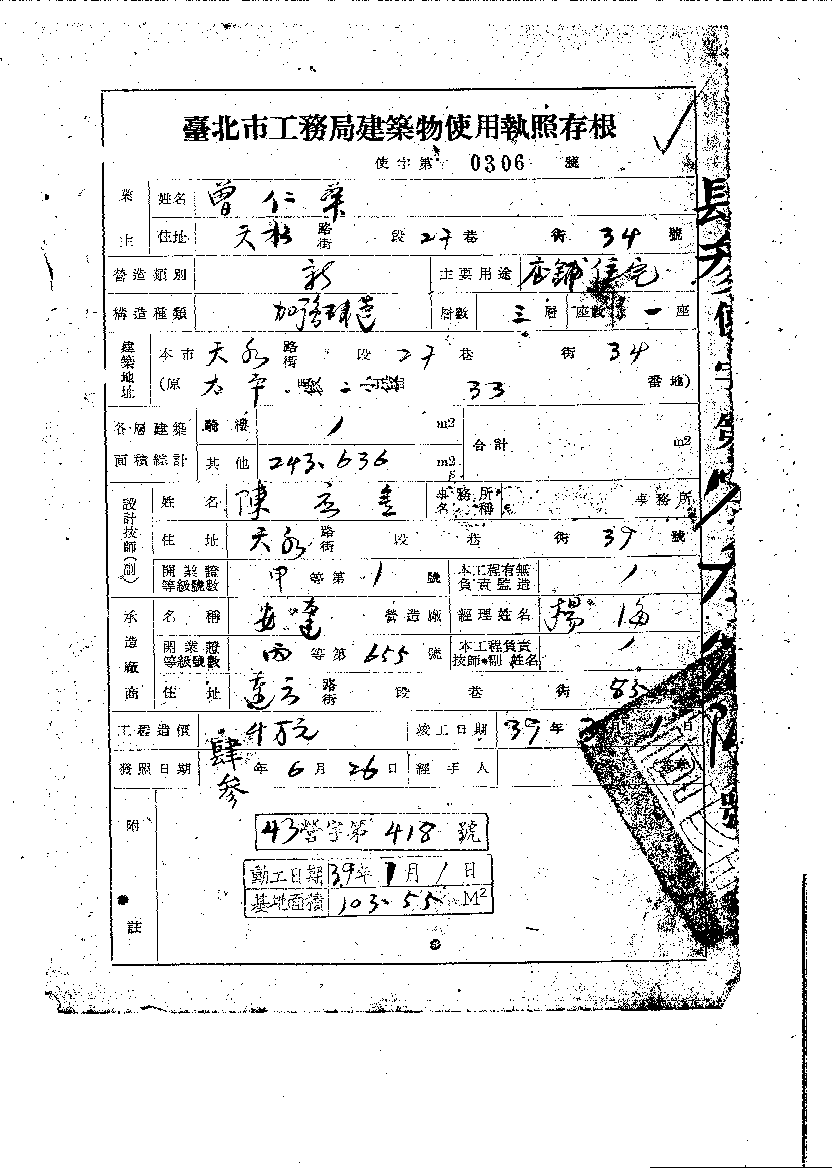 臺北市工務局建築物使用執照存根
使字第 0306 號
業主 姓名 曾仁
住址 天水 路街 段 27 巷 街 34 號
營造類別 新 主要用途 店鋪住宅
構造種類 加強磚造 層數 三 層 座數 一 座
建築地址 本市 天水 路街 段 27 巷 街 34
(原 太平 二 33 番地)
各層建築面積綜計 騎樓 / m2 合計 m2
其他 243.636 m2
設計技師(副) 姓名 陳 事務所名稱 事務所
住址 天水 路街 段 巷 街 39 號
開業證等級號數 甲 等第 1 號 本工程有無負責監造 /
承造廠商 名稱 安達 營造廠 經理姓名 楊海
開業證等級號數 丙 等第 655 號 本工程負責技師・副 姓名 /
住址 達云 路街 段 巷 街 83
工程造價 仟万元 竣工日期 39 年 月 1 日
發照日期 肆參 年 6 月 26 日 經手人
附註
43營字第 418 號
動工日期 39年 1月 1日
基地面積 103.55 M2
長 使字第 號